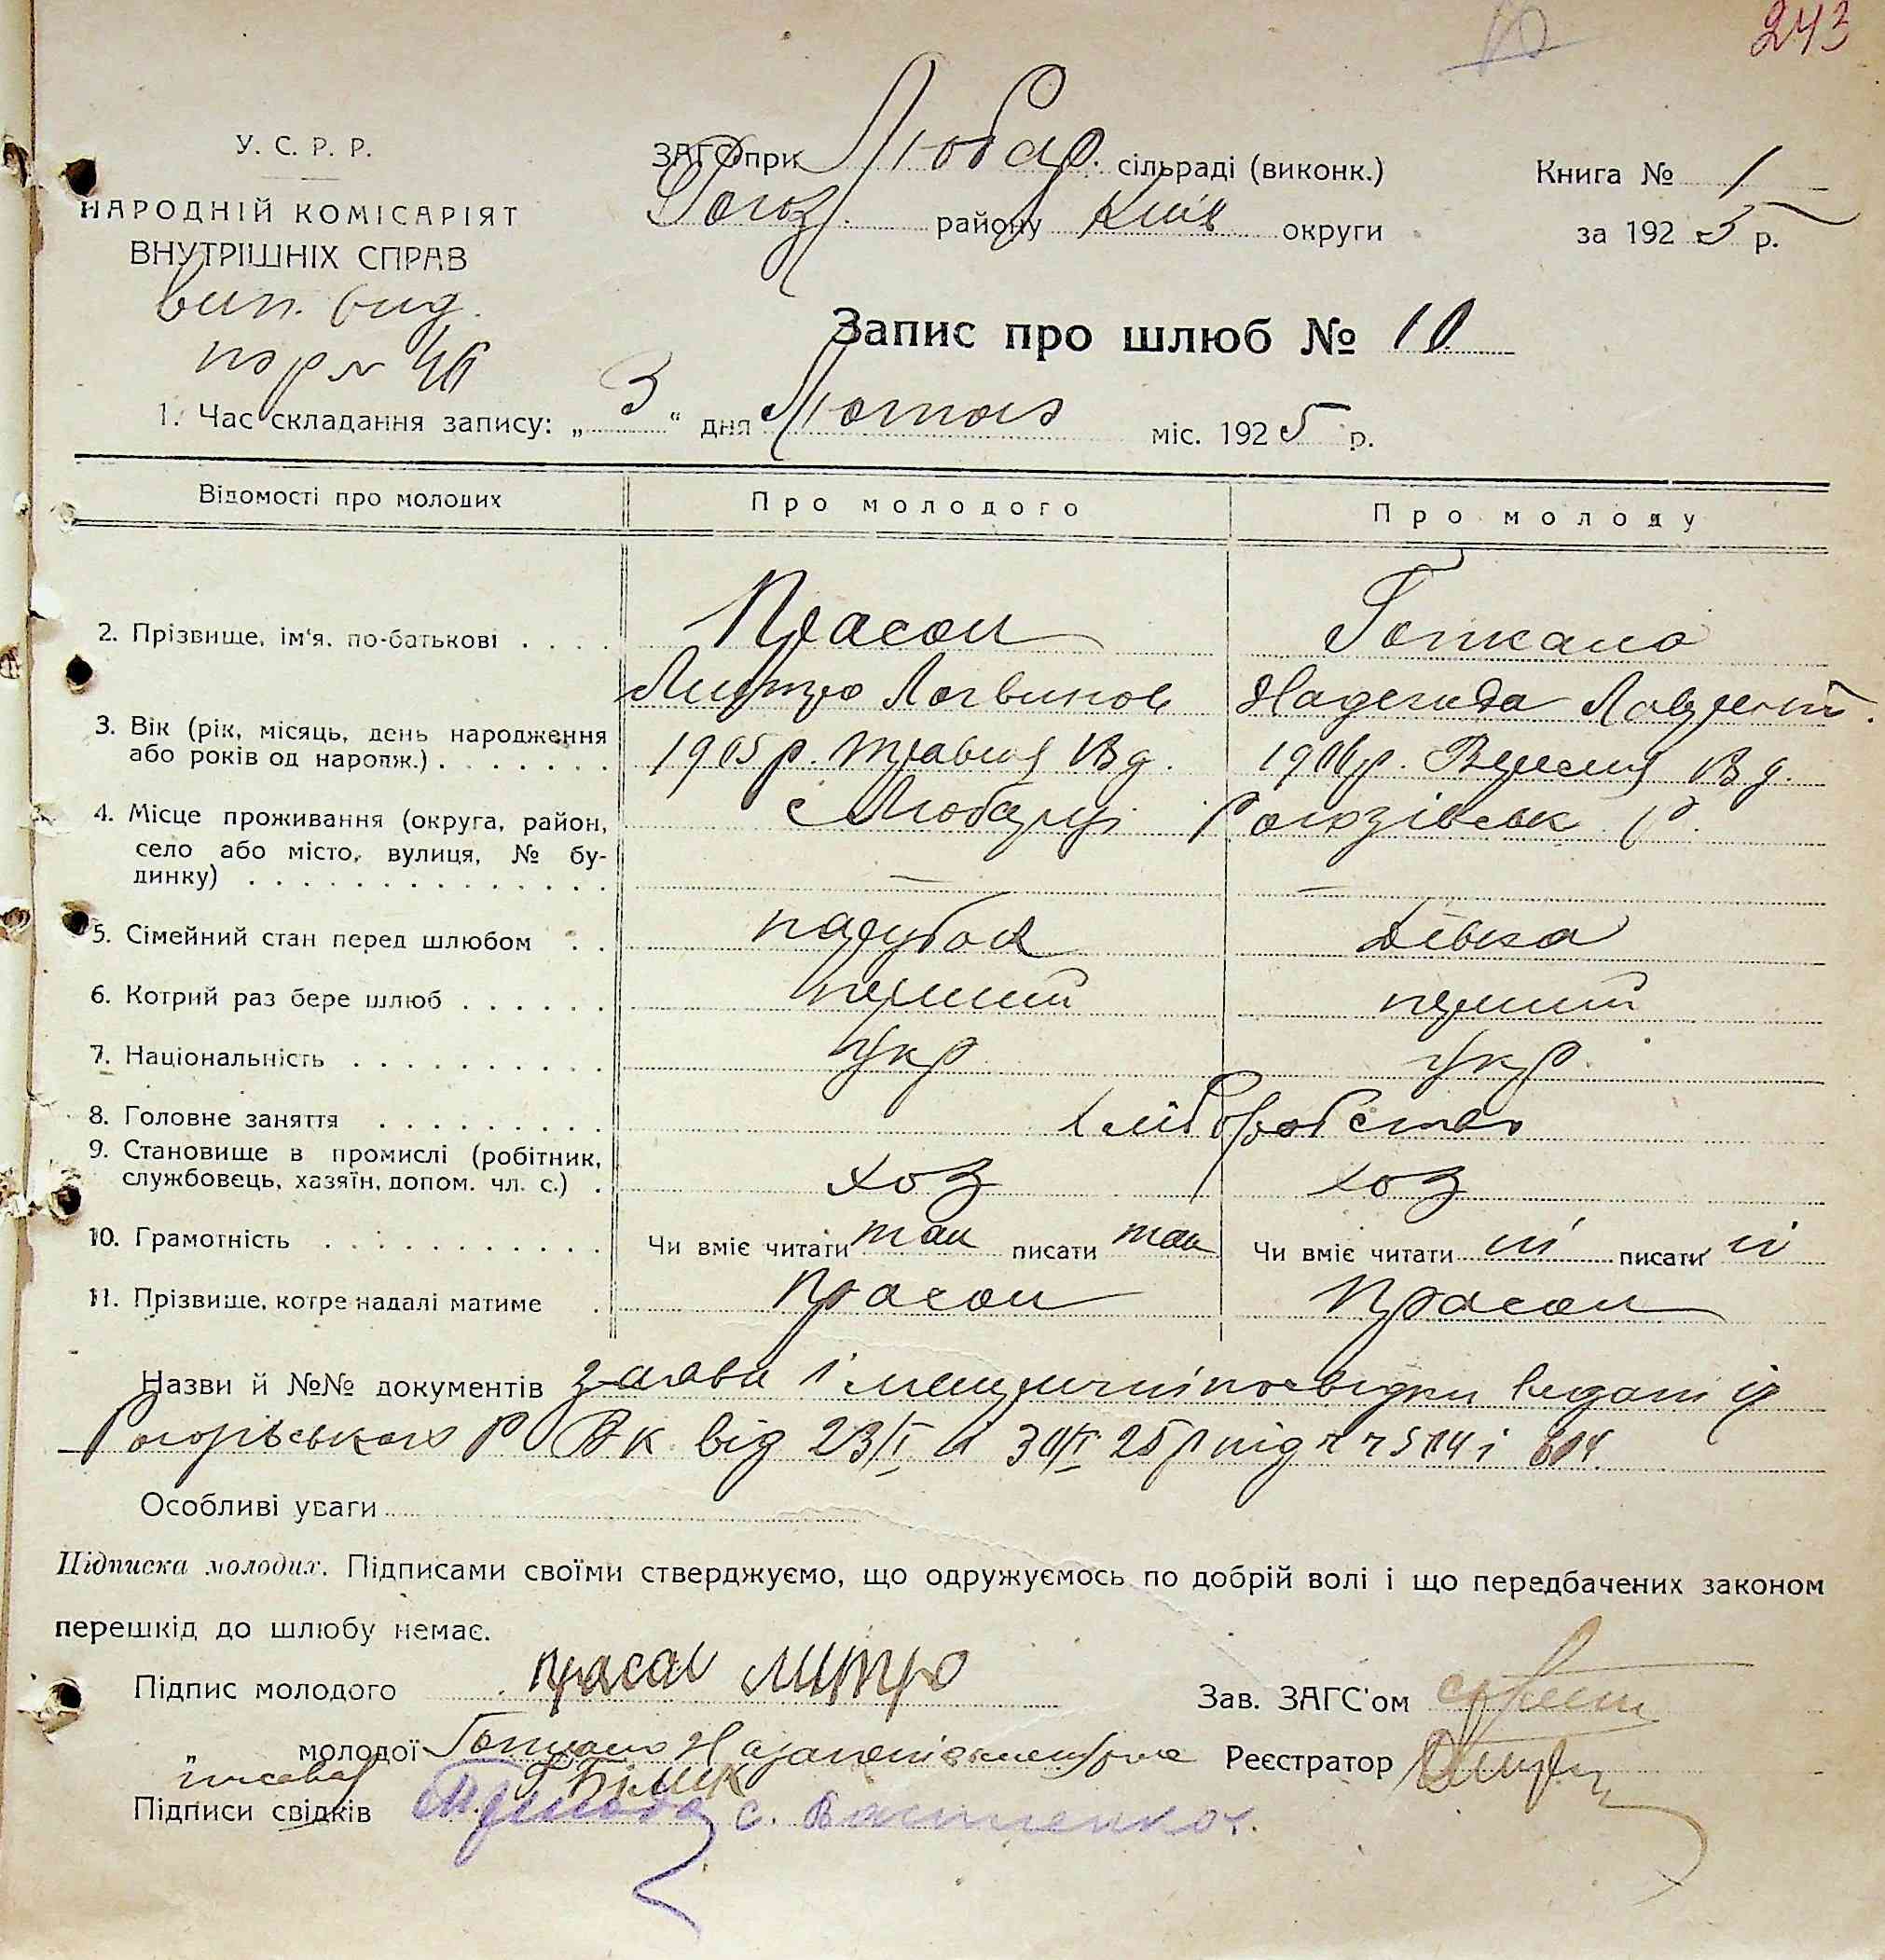 243
У. С. Р. Р.
НАРОДНІЙ КОМІСАРІЯТ
ВНУТРІШНІХ СПРАВ
вип. вид.
ЗАГС при Любар. сільраді (виконк.)
Рогоз. району Київ округи
Книга № 1
за 1925 р.
Запис про шлюб № 10
1. Час складання запису: „ 3 “ дня Лютого міс. 1925 р.
Відомості про молодих
Про молодого
Про молоду
2. Прізвище, ім'я, по-батькові . . . .
Прасол
Митро Логвинов
Надежда
3. Вік (рік, місяць, день народження
або років од народж.) . . . . . . .
1905 р. травня д.
1906 р. Вересня д.
4. Місце проживання (округа, район,
село або місто, вулиця, № бу-
динку) . . . . . . . . . . . . . . .
с Любарці Рогозівськ Р.
5. Сімейний стан перед шлюбом . .
парубок
дівка
6. Котрий раз бере шлюб . . . . . .
перший
перший
7. Національність . . . . . . . . . .
укр
укр.
8. Головне заняття . . . . . . . . .
хліборобство
9. Становище в промислі (робітник,
службовець, хазяїн, допом. чл. с.) .
хоз
хоз
10. Грамотність . . . . . . . . . . .
Чи вміє читати так писати так
Чи вміє читати ні писати ні
11. Прізвище, котре надалі матиме .
Прасол
Прасол
Назви й №№ документів заява і посвідки видані
РВК від 23/I й 30/I 25 р під
Особливі уваги
Підписка молодих. Підписами своїми стверджуємо, що одружуємось по добрій волі і що передбачених законом
перешкід до шлюбу немає.
Підпис молодого Прасол Митро
Зав. ЗАГС'ом
„ молодої
Реєстратор
писав Білик
Підписи свідків с. Василенко